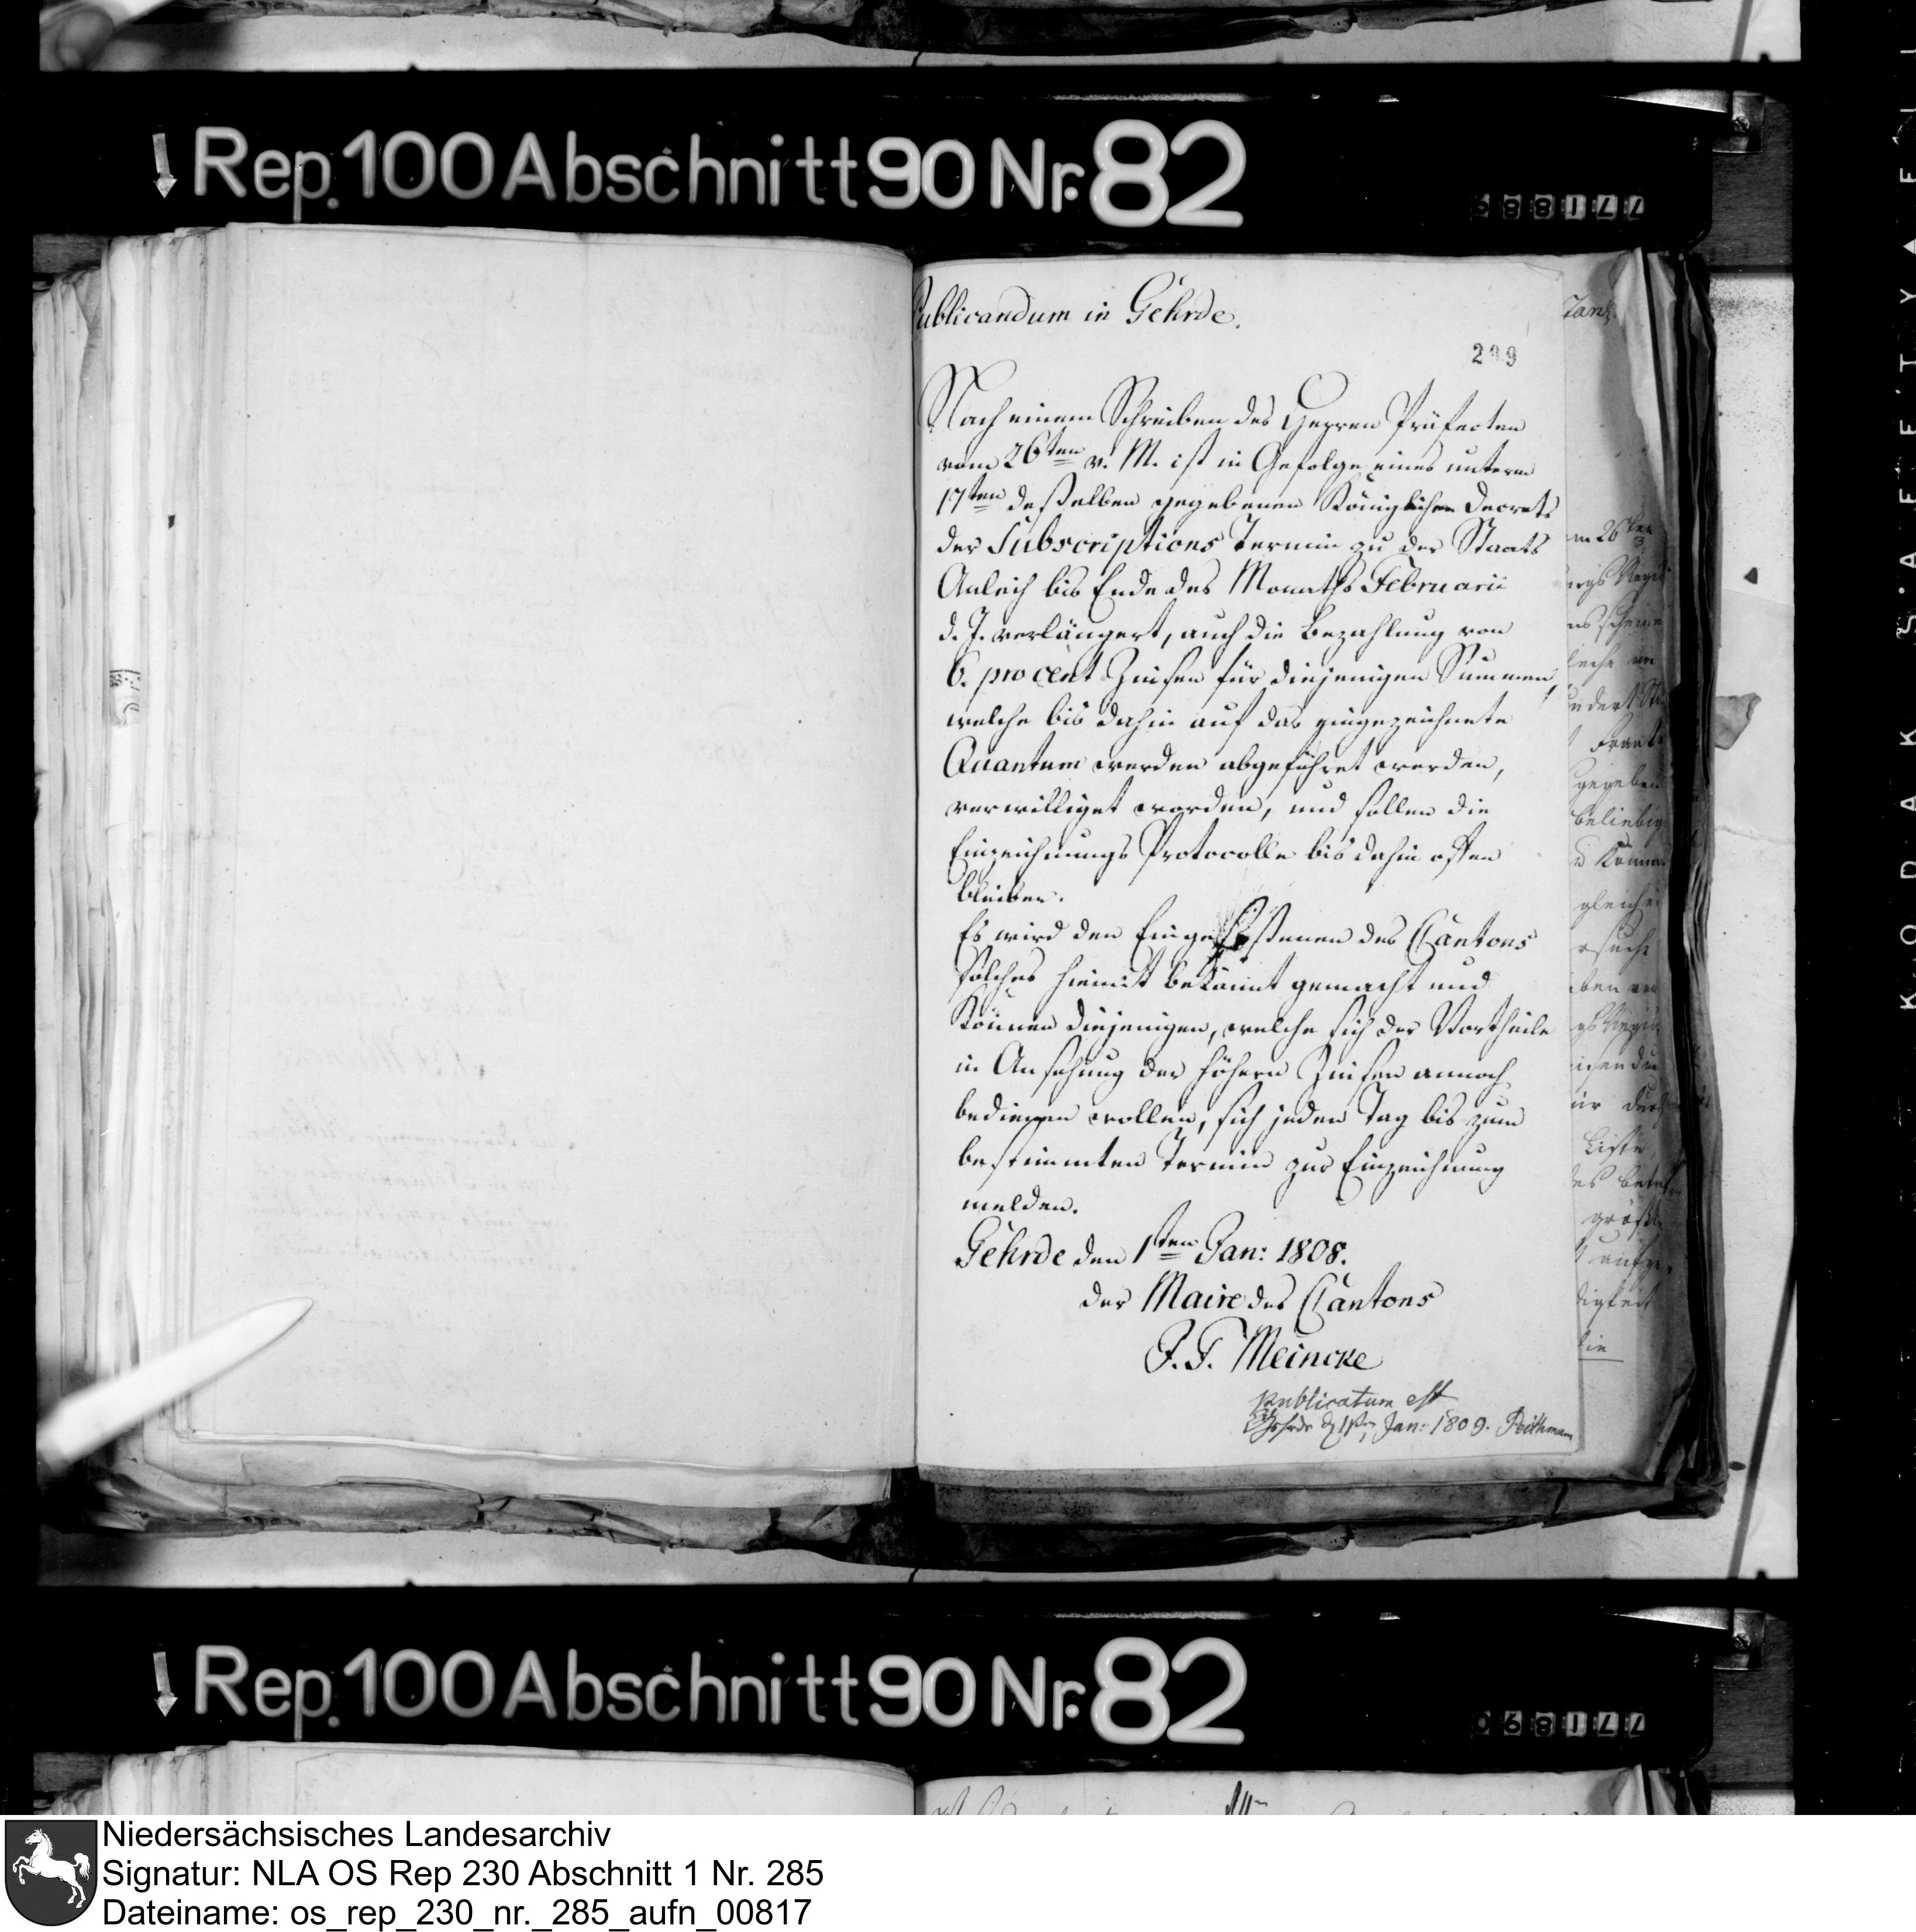 Rep. 100 Abschnitt 90 Nr. 82
771889
Publicandum in Gehrde.
299
Nach einem Schreiben des Herren Präfecten
vom 26ten v. M. ist in Gefolge eines unterm
17ten deßelben gegebenen Königlichen Decrets
der Subscriptions Termin zu der Staats
Anleih bis Ende des Monaths Februarii
d. J. verlängert, auch die Bezahlung von
6. procent Zinsen für diejenigen Summen,
welche bis dahin auf das eingezeichnete
Quantum werden abgeführet werden,
verwilliget worden, und sollen die
Einzeichnungs Protocolle bis dahin offen
bleiben.
Es wird den Eingeseßenen des Cantons
solches hiemit bekannt gemacht und
können diejenigen, welche sich der Vortheile
in Ansehung der höhern Zinsen annoch
bedienen wollen, sich jeden Tag bis zum
bestimmten Termin zur Einzeichnung
melden.
Gehrde den 1ten Jan: 1808.
der Maire des Cantons
J. F. Meincke
publicatum est
Gehrde d 1sten Jan: 1809. Peithmann
Rep. 100 Abschnitt 90 Nr. 82
771890
KODAK SAFETY
Niedersächsisches Landesarchiv
Signatur: NLA OS Rep 230 Abschnitt 1 Nr. 285
Dateiname: os_rep_230_nr._285_aufn_00817